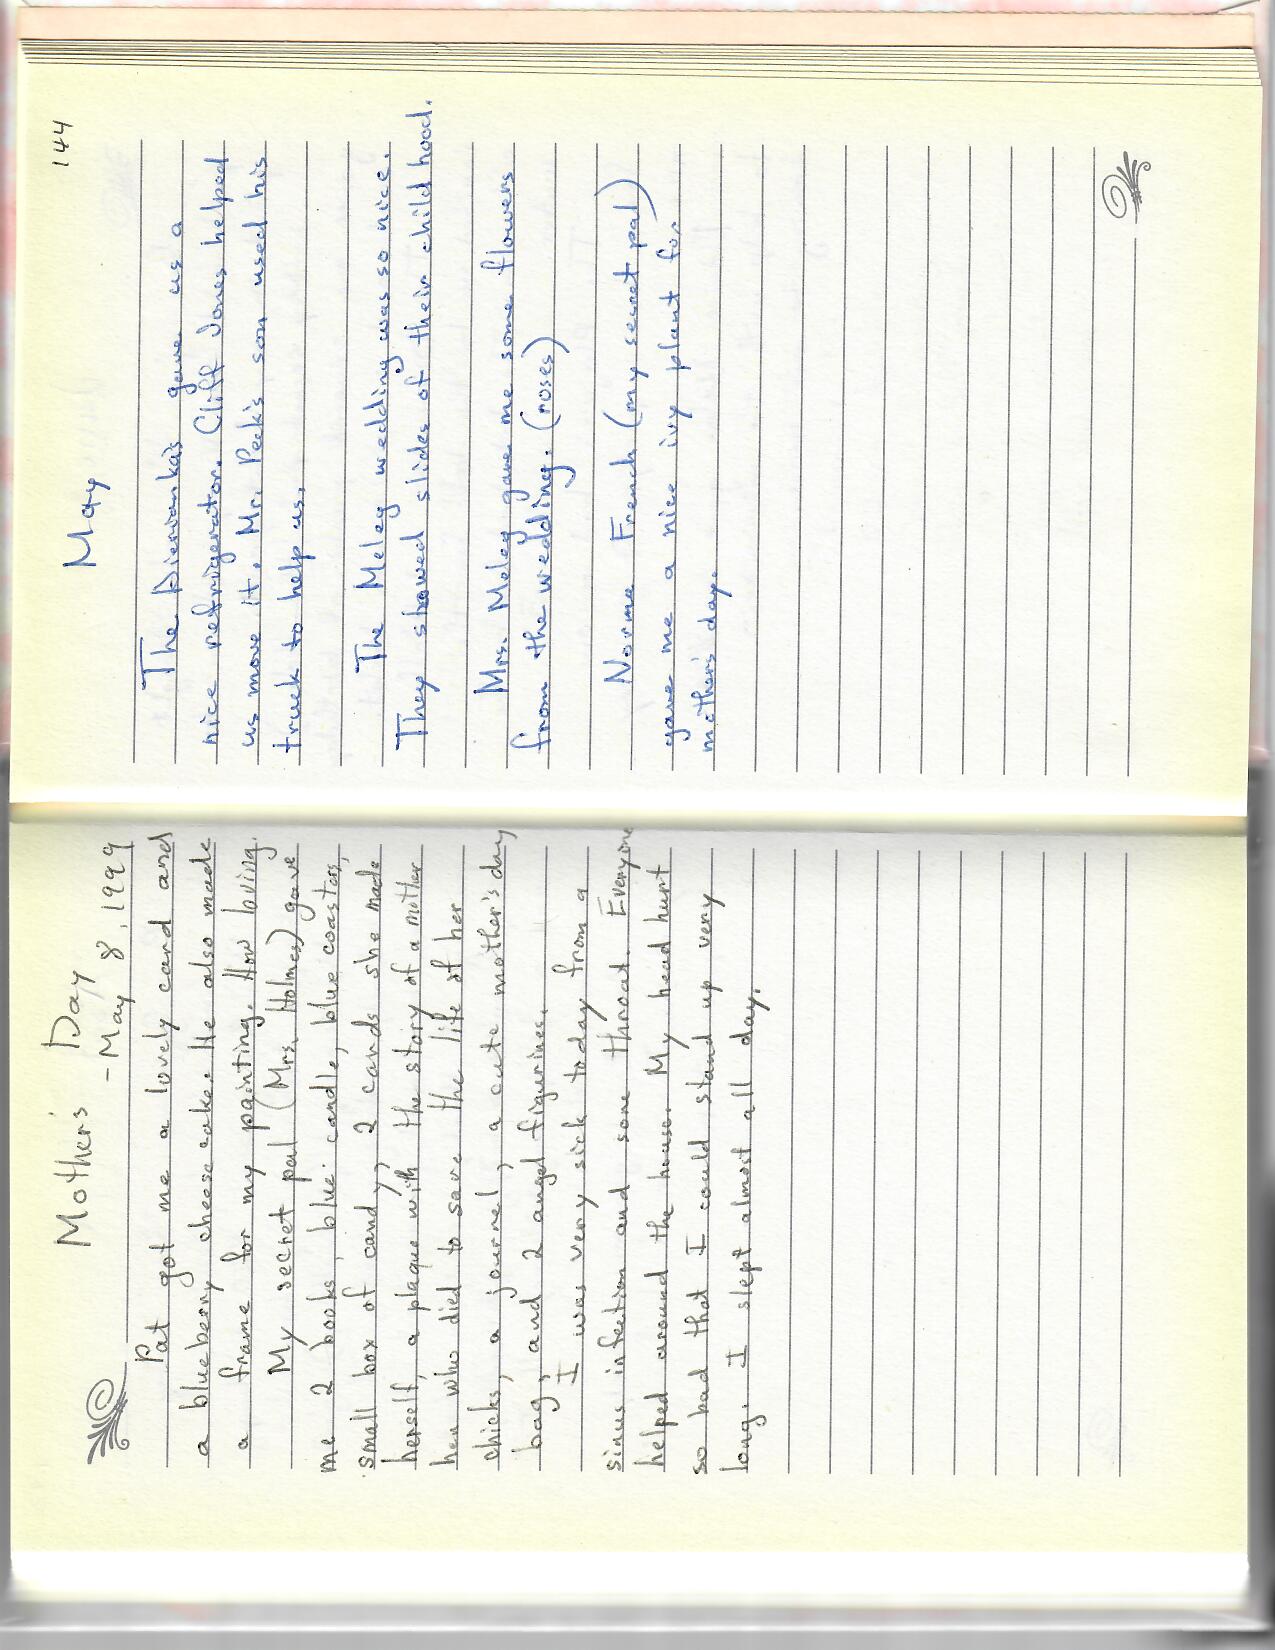 Mother's Day
- May 8, 1999
Pat got me a lovely card and
a blueberry cheese cake. He also made
a frame for my painting. How loving.
My secret pal (Mrs. Holmes) gave
me 2 books, blue candle, blue coasters,
small box of candy, 2 cards she made
herself, a plaque with the story of a mother
hen who died to save the life of her
chicks, a journel, a cute mother's day
bag, and 2 angel figurines.
I was very sick today from a
sinus infection and sore throat. Everyone
helped around the house. My head hurt
so bad that I could stand up very
long. I slept almost all day.
144
May
The gave us a
nice refrigerator. Cliff Jones helped
us move it. Mr. Peek's son used his
truck to help us.
The Meleg wedding was so nice.
They showed slides of their child hood.
Mrs. Meleg gave me some flowers
from the wedding. (roses)
Norma French (my secret pal)
gave me a nice ivy plant for
mother's day.